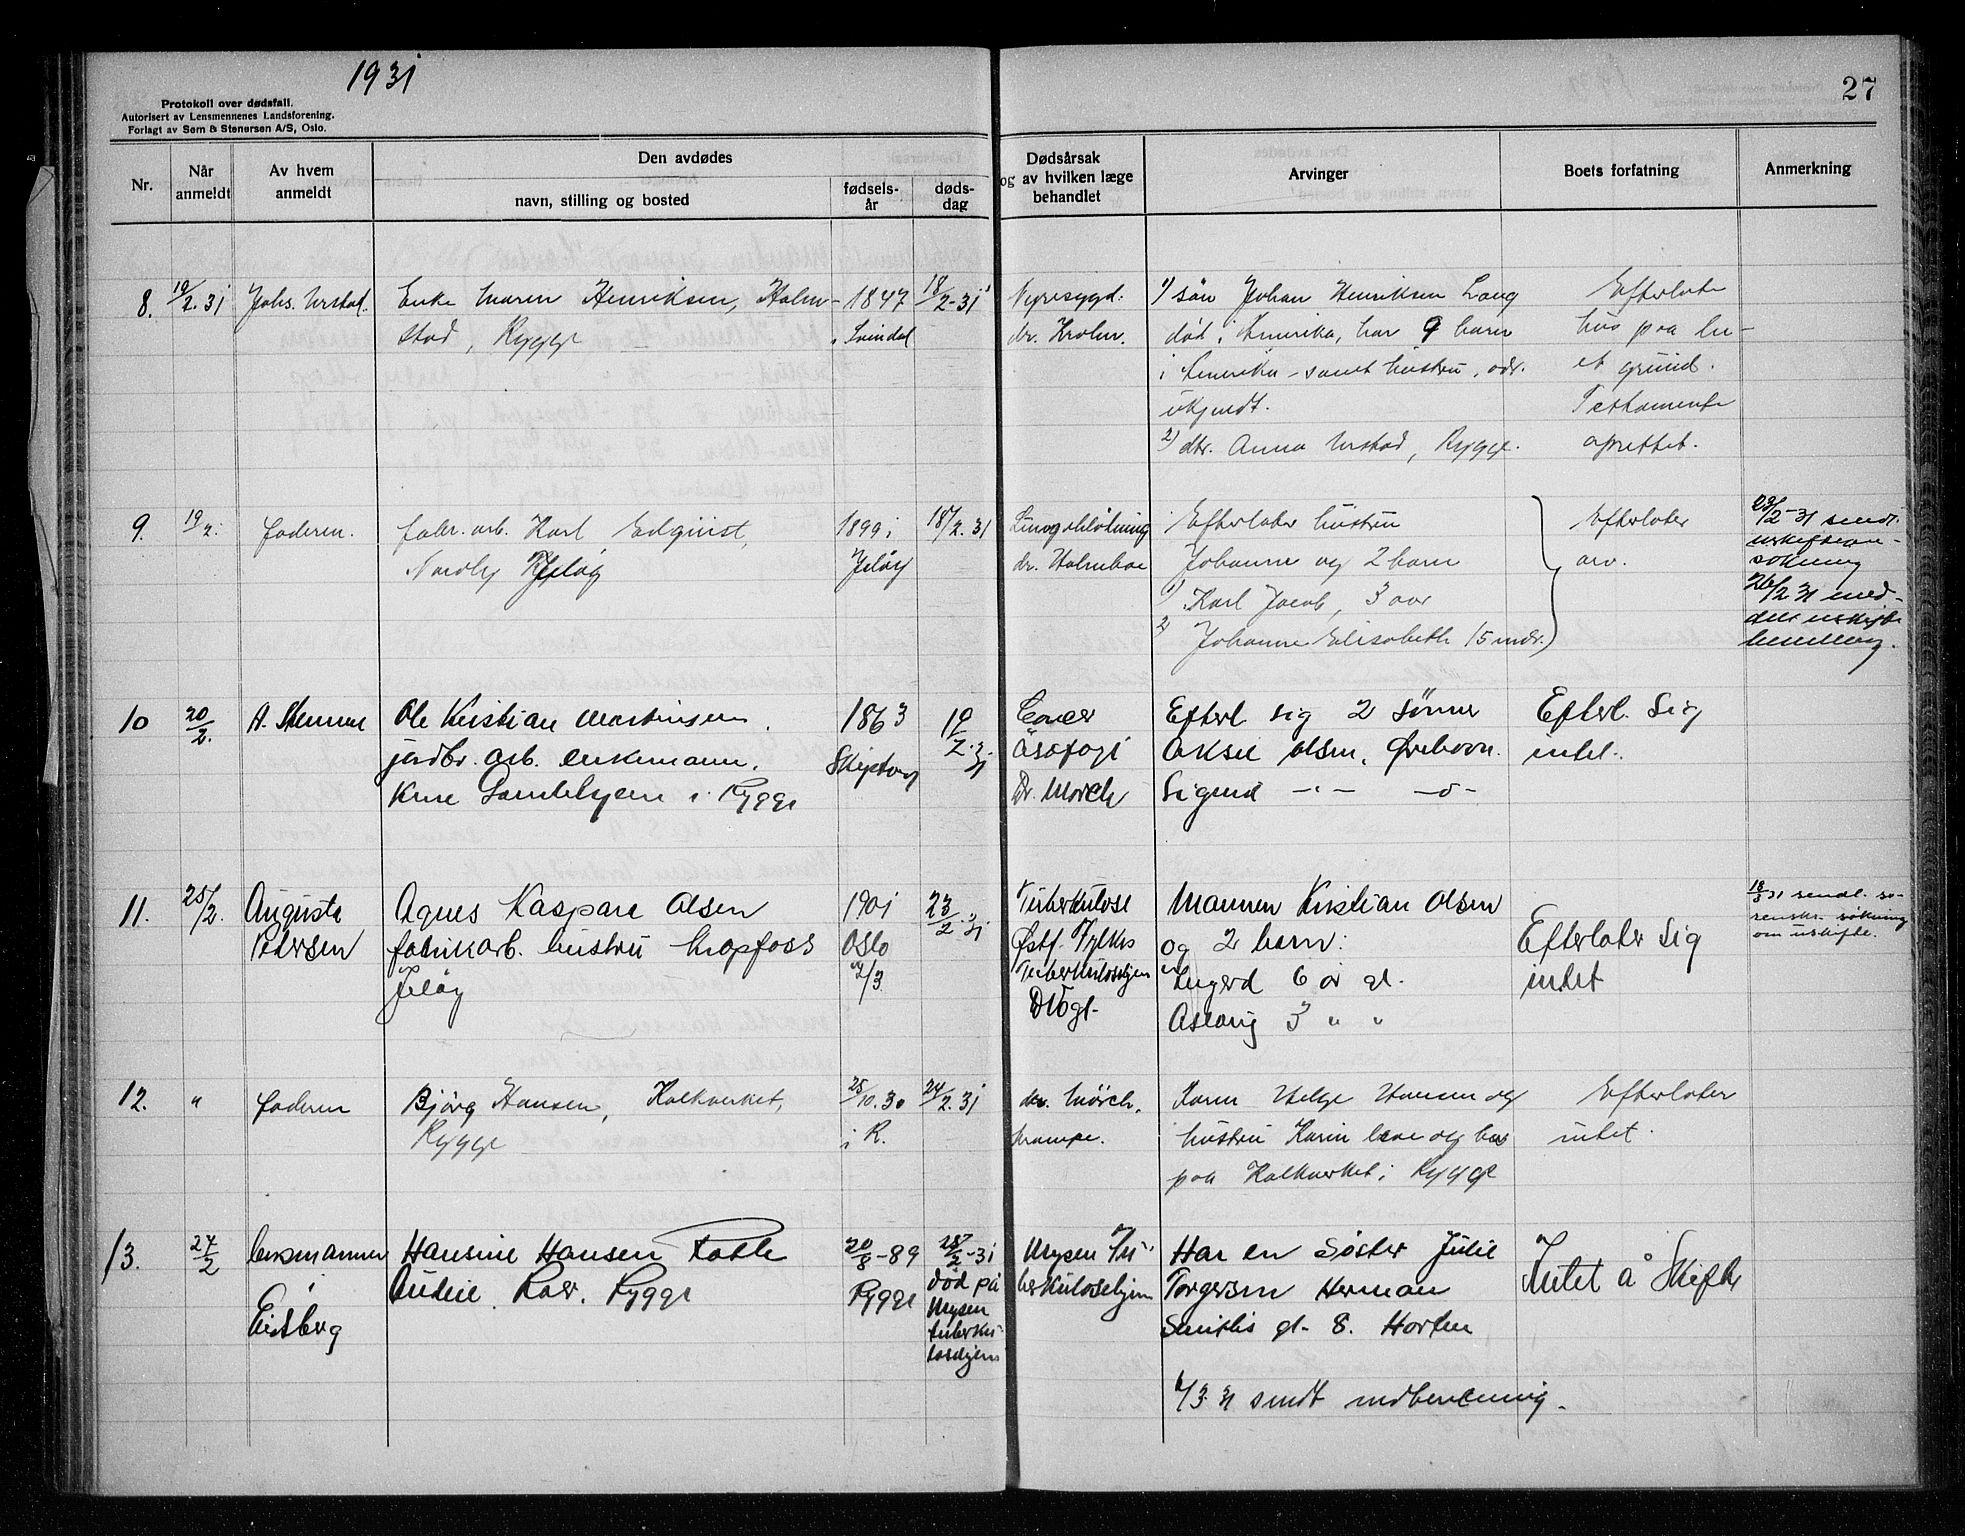 1931
27
Protokoll over dødsfall.
Autorisert av Lensmennenes Landsforening.
Forlagt av Sem & Stenersen A/S, Oslo.
Nr.
Når
anmeldt
Av hvem
anmeldt
Den avdødes
navn, stilling og bosted
fødsels-
år
døds-
dag
Dødsårsak
og av hvilken læge
behandlet
Arvinger
Boets forfatning
Anmerkning
8.
19/2.31
Johs. Urstad.
Enke Maren Henriksen, Halm-
stad, Rygge
1847
i Svindal
18/2-31
Nyresygd.
dr. Krohn.
1) søn Johan Henriksen Lang
død i Amerika, har 9 barn
i Amerika - samt hustru, adr.
ukjendt.
2) dtr. Anna Urstad, Rygge.
Efterlater
hus paa lei-
et grund.
Testamente
oprettet.
9.
19/2.
faderen.
fabr. arb. Karl Edquist,
Nordby Jeløy
1899,
Jeløy
18/2.31
dr. Holmboe
Efterlater hustru
Johanne og 2 barn
1) Karl Jacob, 3 aar
2) Johanne Elisabeth 15 mdr.
Efterlater
arv.
23/2-31 sendt
uskiftean-
søkning
26/2 31 med-
delt uskifte
bevilling.
10
20/2.
A.
Ole Kristian Martinsen
jordbr. arb. enkemann.
i Rygge
1863
Skiptvet
19/2.31
Dr. Mørch
Efterl. sig 2 sønner
Aksel Olsen, Ørehavn.
Sigurd -"- -o-
Efterl. sig
intet.
11.
25/2.
Auguste
Petersen
Agnes Kaspara Olsen
fabrikarb. hustru Kropfoss
Jeløy
1901
Oslo
2/3
23/2.31
Tuberkulose
Østf. Fylkes
Tuberkulosehjem
D Vogt
Mannen Kristian Olsen
og 2 barn:
Ingerd 6 år gl.
Aslaug 3 " "
Efterlater sig
intet
18/3 31 sendt so-
renskr. søkning
om uskifte.
12.
"
faderen
Bjørg Hansen, Kalkverket,
Rygge
25/10.30
i R.
24/2.31
dr. Mørch.
krampe.
Helge Hansen og
hustru Karin leve og bor
paa Kalkverket i Rygge
Efterlater
intet.
13.
27/2
Lensmannen
Eidsberg
Hansine Hansen
Roer. Rygge
20/8-89
Rygge
25/2-31
død på
Mysen
tuberku-
losehjem
Mysen Tu-
berkulosehjem
Har en søster Julie
Torgersen Herman
Smiths gt. 8. Horten
/3 31 sendt indberetning.
Intet å skifte